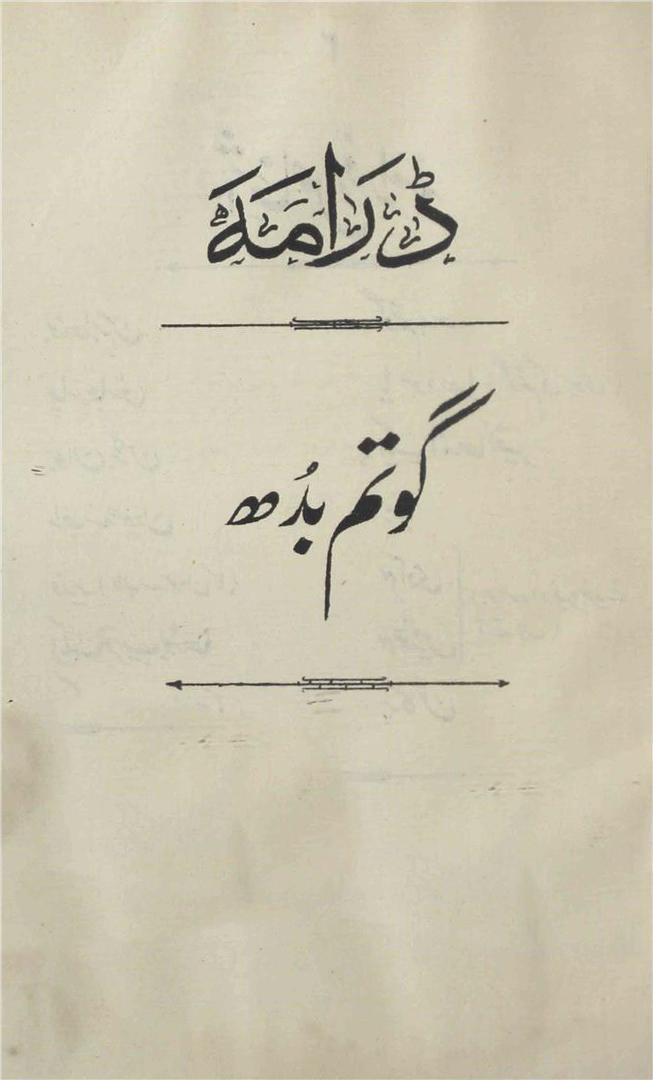 ڈرامہ
گوتم بُدھ